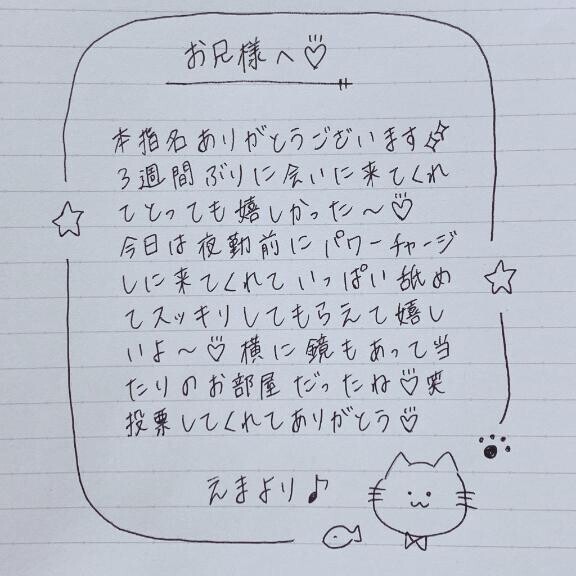 お兄様へ♡
本指名ありがとうございます✨
3週間ぶりに会いに来てくれ
てとっても嬉しかった〜♡
今日は夜勤前にパワーチャージ
しに来てくれていっぱい舐め
てスッキリしてもらえて嬉し
いよ〜♡横に鏡もあって当
たりのお部屋だったね♡笑
投票してくれてありがとう♡
えまより♪